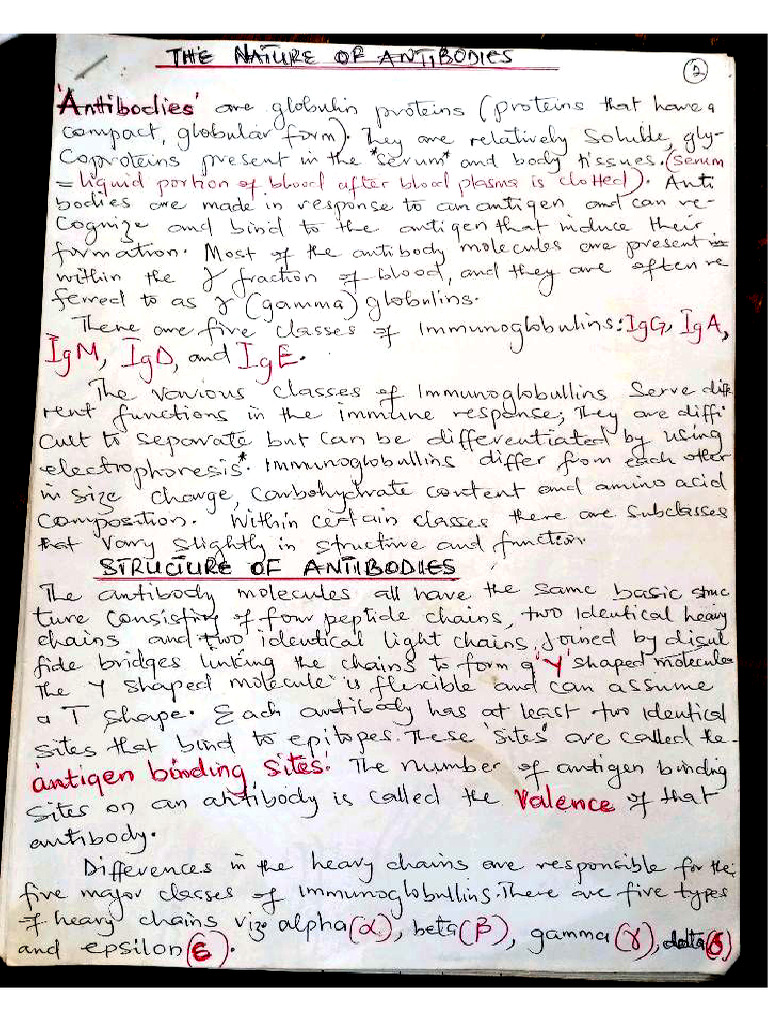 THE NATURE OF ANTIBODIES
2
'Antibodies' are globulin proteins (proteins that have a
compact, globular form). They are relatively soluble, gly-
coproteins present in the *serum* and body tissues. (serum
= liquid portion of blood after blood plasma is clotted). Anti
bodies are made in response to an antigen, and can re-
cognize and bind to the antigen that induce their
formation. Most of the antibody molecules are present in
within the γ fraction of blood, and they are often re
ferred to as γ (gamma) globulins.
There are five classes of Immunoglobulins: IgG, IgA,
IgM, IgD, and IgE.
The various classes of Immunoglobullins serve diffe
rent functions in the immune response; They are diffi
cult to separate but can be differentiated by using
electrophoresis*. Immunoglobullins differ from each other
in size charge, carbohydrate content and amino acid
composition. Within certain classes there are subclasses
that vary slightly in structure and function.
STRUCTURE OF ANTIBODIES
The antibody molecules all have the same basic struc
ture consisting of four peptide chains, two identical heavy
chains and two identical light chains, joined by disul
fide bridges linking the chains to form a 'Y' shaped molecule
The Y shaped molecule is flexible and can assume
a T shape. Each antibody has at least two identical
sites that bind to epitopes. These 'sites' are called the
'antigen binding sites'. The number of antigen binding
sites on an antibody is called the valence of that
antibody.
Differences in the heavy chains are responsible for the
five major classes of Immunoglobullins. There are five types
of heavy chains viz: alpha (α), beta (β), gamma (γ), delta (δ)
and epsilon (ε).